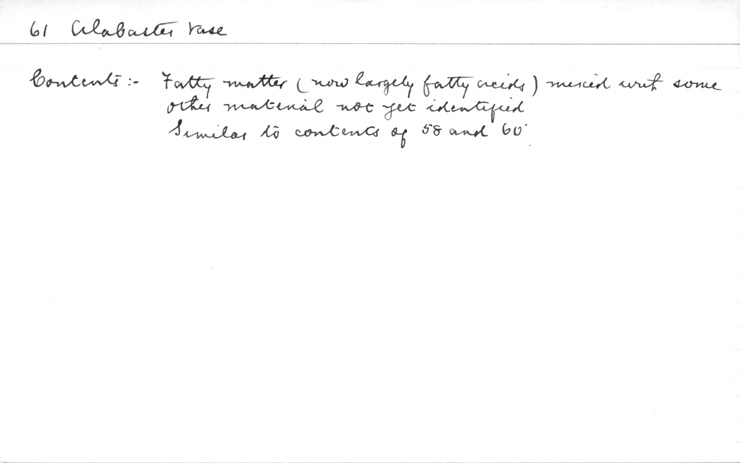 61 Alabaster Vase
Contents :- Fatty matter (now largely fatty acids) mixed with some
other material not yet identified
Similar to contents of 58 and 60.